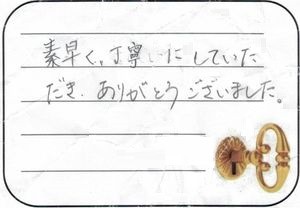 素早く、丁寧いにしていた
だき、ありがとうございました。